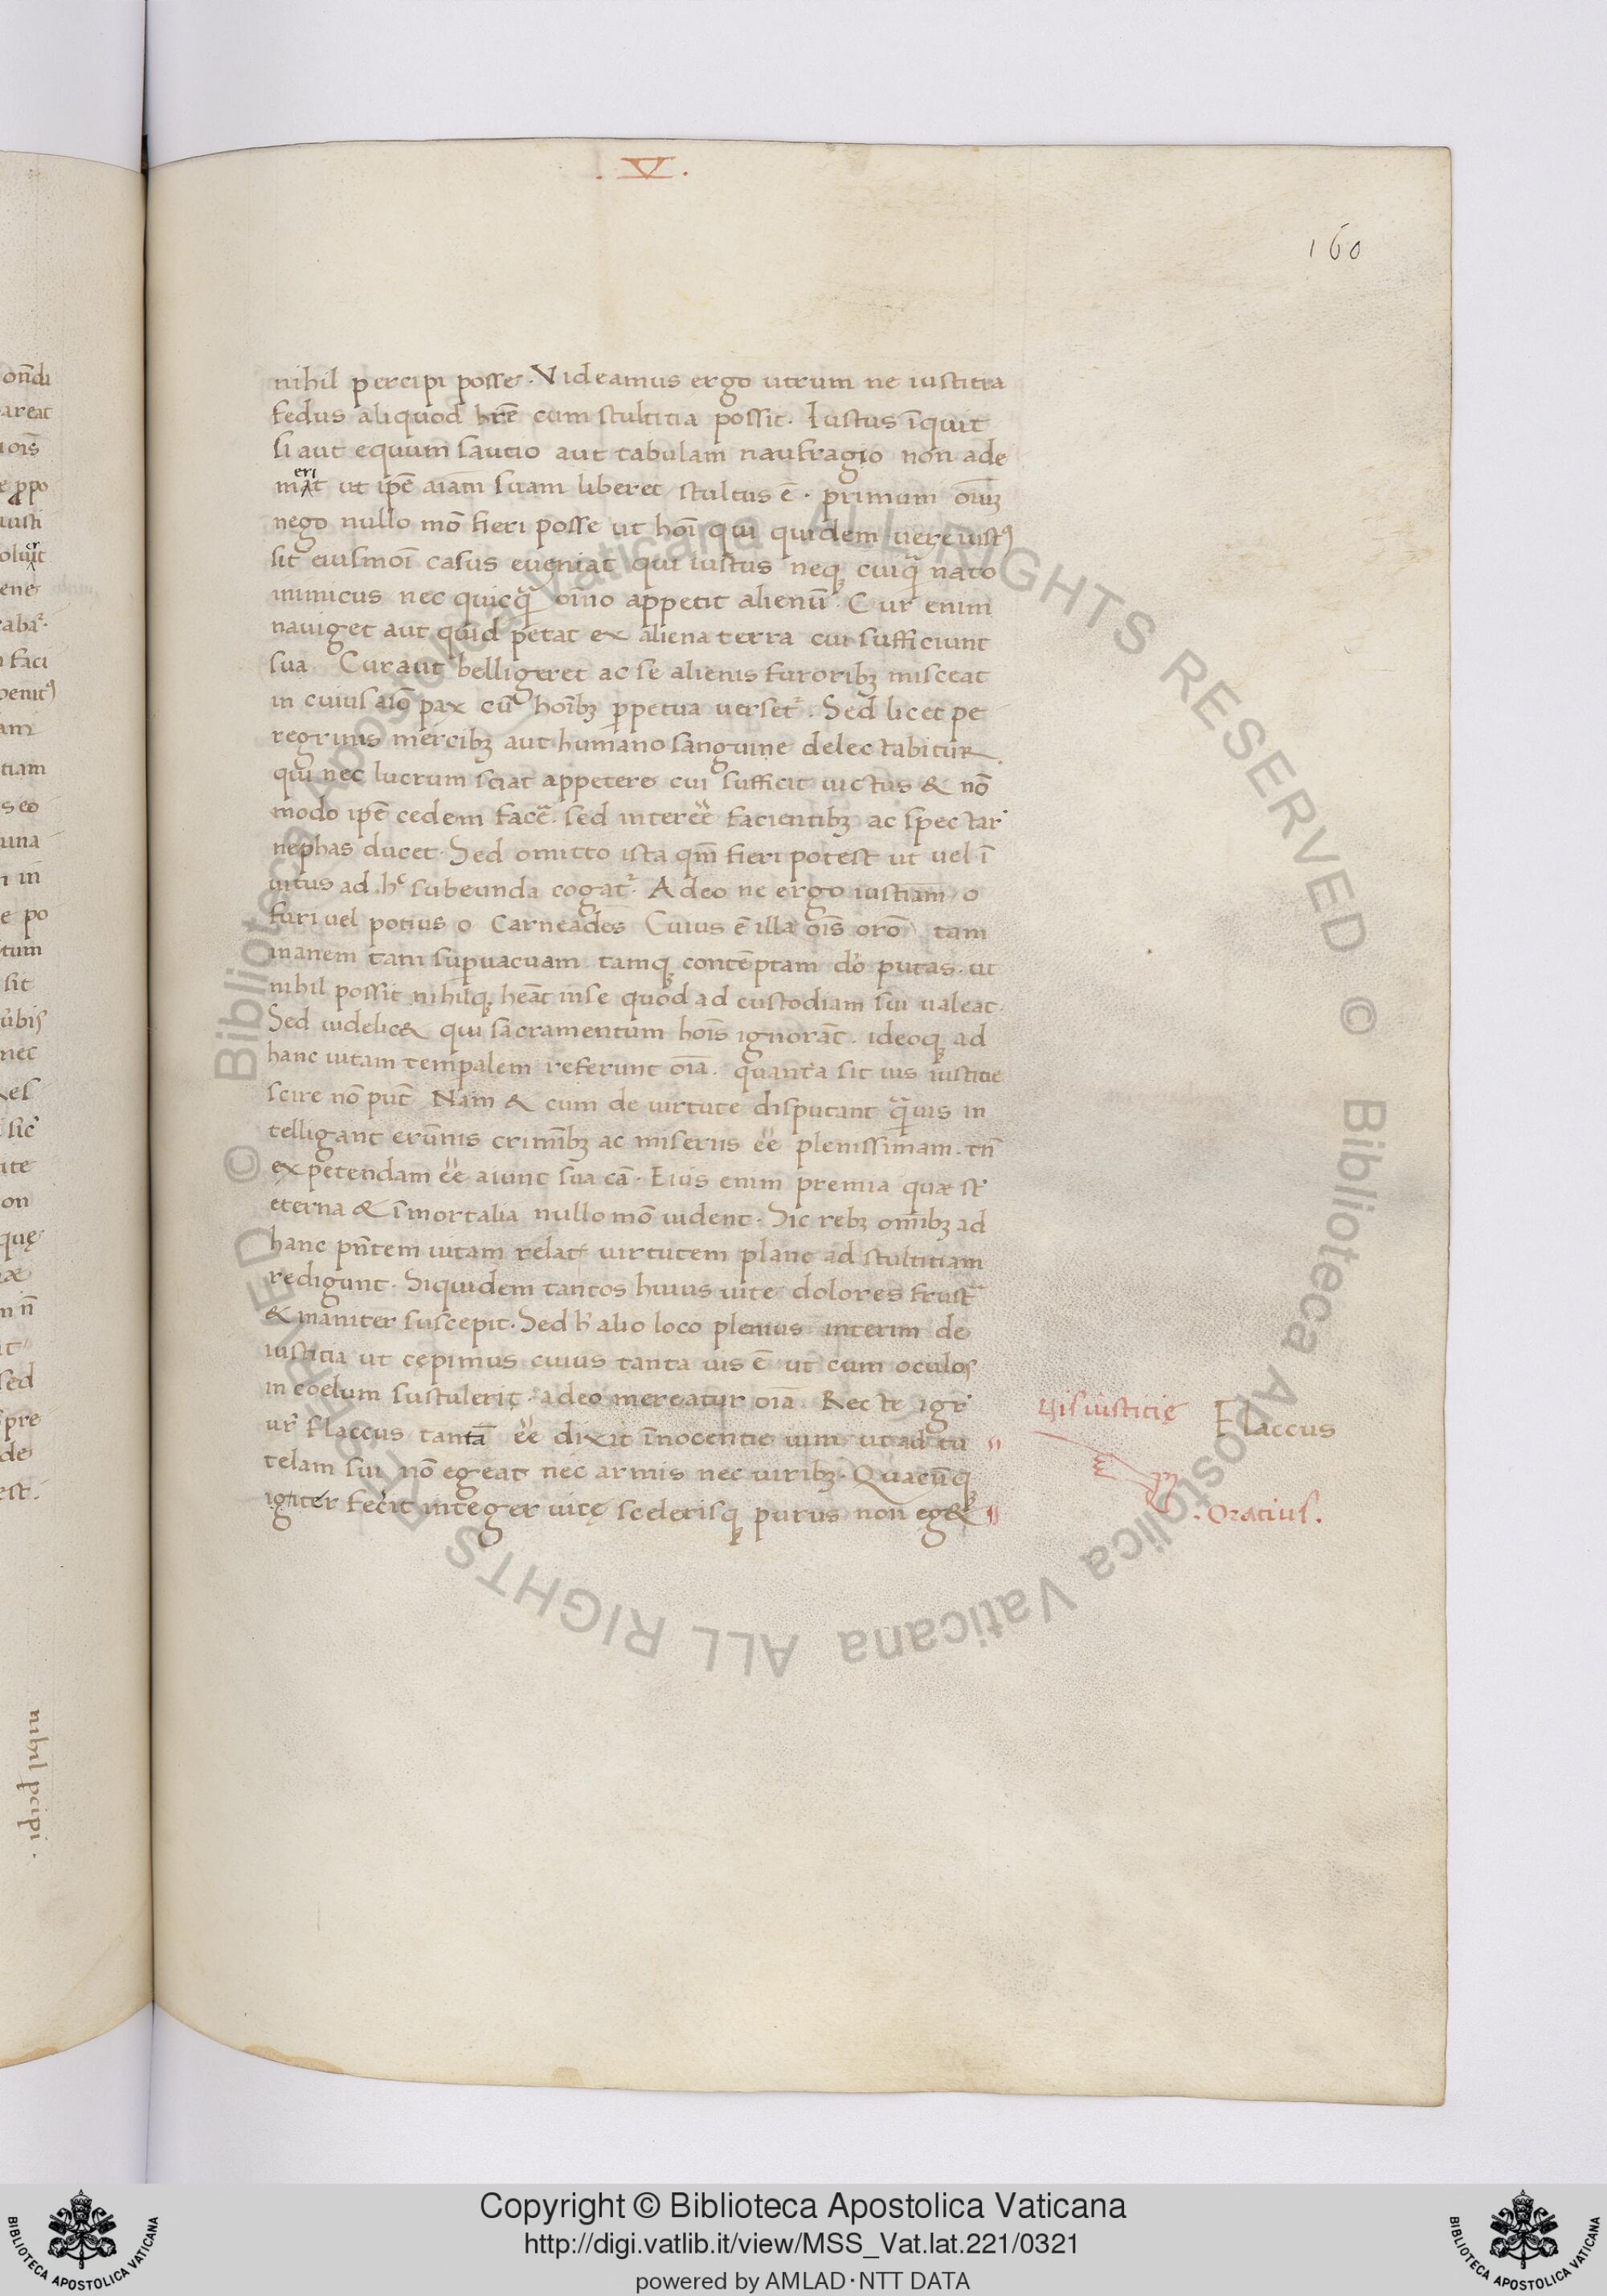 .V.
160
nihil percipi posse. Videamus ergo utrum ne iustitia
fedus aliquod hr̄e cum stultitia possit. Iustus īquit
si aut equum sautio aut tabulam naufragio non ade
merit ut ip̄e aīam suam liberet stultus ē. primum oīuꝫ
nego nullo mō fieri posse ut hoī qui quidem uere iustꝰ
sit eiusmoī casus eueniat qui iustus neqꝫ cuiq̄ nato
inimicus nec quicq̄ oīno appetit alienū. Cur enim
nauiget aut quid petat ex aliena terra cui sufficiunt
sua. Cur aut belligeret ac se alienis furoribꝫ misceat
in cuius aīo pax cū hoībꝫ ꝑpetua uersetᷣ. Sed licet pe
regrinis mercibꝫ aut humano sanguine delectabitur
qui nec lucrum sciat appetere cui sufficit uictus & nō
modo ip̄e cedem facē. sed interēē facientibꝫ ac spectar
nephas ducet. Sed omitto ista qm̄ fieri potest ut uel ī
uitus ad hc̄ subeunda cogatᷣ. Adeo ne ergo iustiam o
furi uel potius o Carneades Cuius ē illa oīs orō tam
inanem tam suꝑuacuam tamqꝫ contēptam dō putas. ut
nihil possit nihilqꝫ heāt in se quod ad custodiam sui ualeat.
Sed uidelic& qui sacramentum hoīs ignorāt. ideoqꝫ ad
hanc uitam temꝑalem referunt oīa. quanta sit uis iustitie
scire nō pūt Nam & cum de uirtute disputant q̄uis in
telligant erūnis crimībꝫ ac miseriis ēē plenissimam. tn̄
expetendam ēē aiunt sua cā. Eius enim premia quæ st̄
eterna & īmortalia nullo mō uident. Sic rebꝫ omībꝫ ad
hanc pn̄tem uitam relatꝭ uirtutem plane ad stultitiam
redigunt. Siquidem tantos huius uite dolores frustᵃ
& inaniter suscepit. Sed h̄ alio loco plenius interim de
iustitia ut cepimus cuius tanta uis ē ut cum oculos
in coelum sustulerit. adeo mereatur oīa. Recte igr̄
ur̄ flaccus tantā ēē dixit īnocentie uim ut ad tu
telam sui nō egeat nec armis nec uiribꝫ. Quacūqꝫ
igiter fecit integer uitę scelerisqꝫ purus non eg&
uis iustitię
Flaccus
.Oratius.
ond̄i
areat
oīs
ꝓpo
iusti
ene
faci
penitꝰ
am
tiam
seo
una
in
e po
tum
sit
ubis
nec
ite
on
quę
sed
pre
de
est.
nihil ꝑcipi.
Copyright © Biblioteca Apostolica Vaticana
http://digi.vatlib.it/view/MSS_Vat.lat.221/0321
powered by AMLAD·NTT DATA
BIBLIOTECA APOSTOLICA VATICANA
BIBLIOTECA APOSTOLICA VATICANA
© Biblioteca Apostolica Vaticana ALL RIGHTS RESERVED © Biblioteca Apostolica Vaticana ALL RIGHTS RESERVED